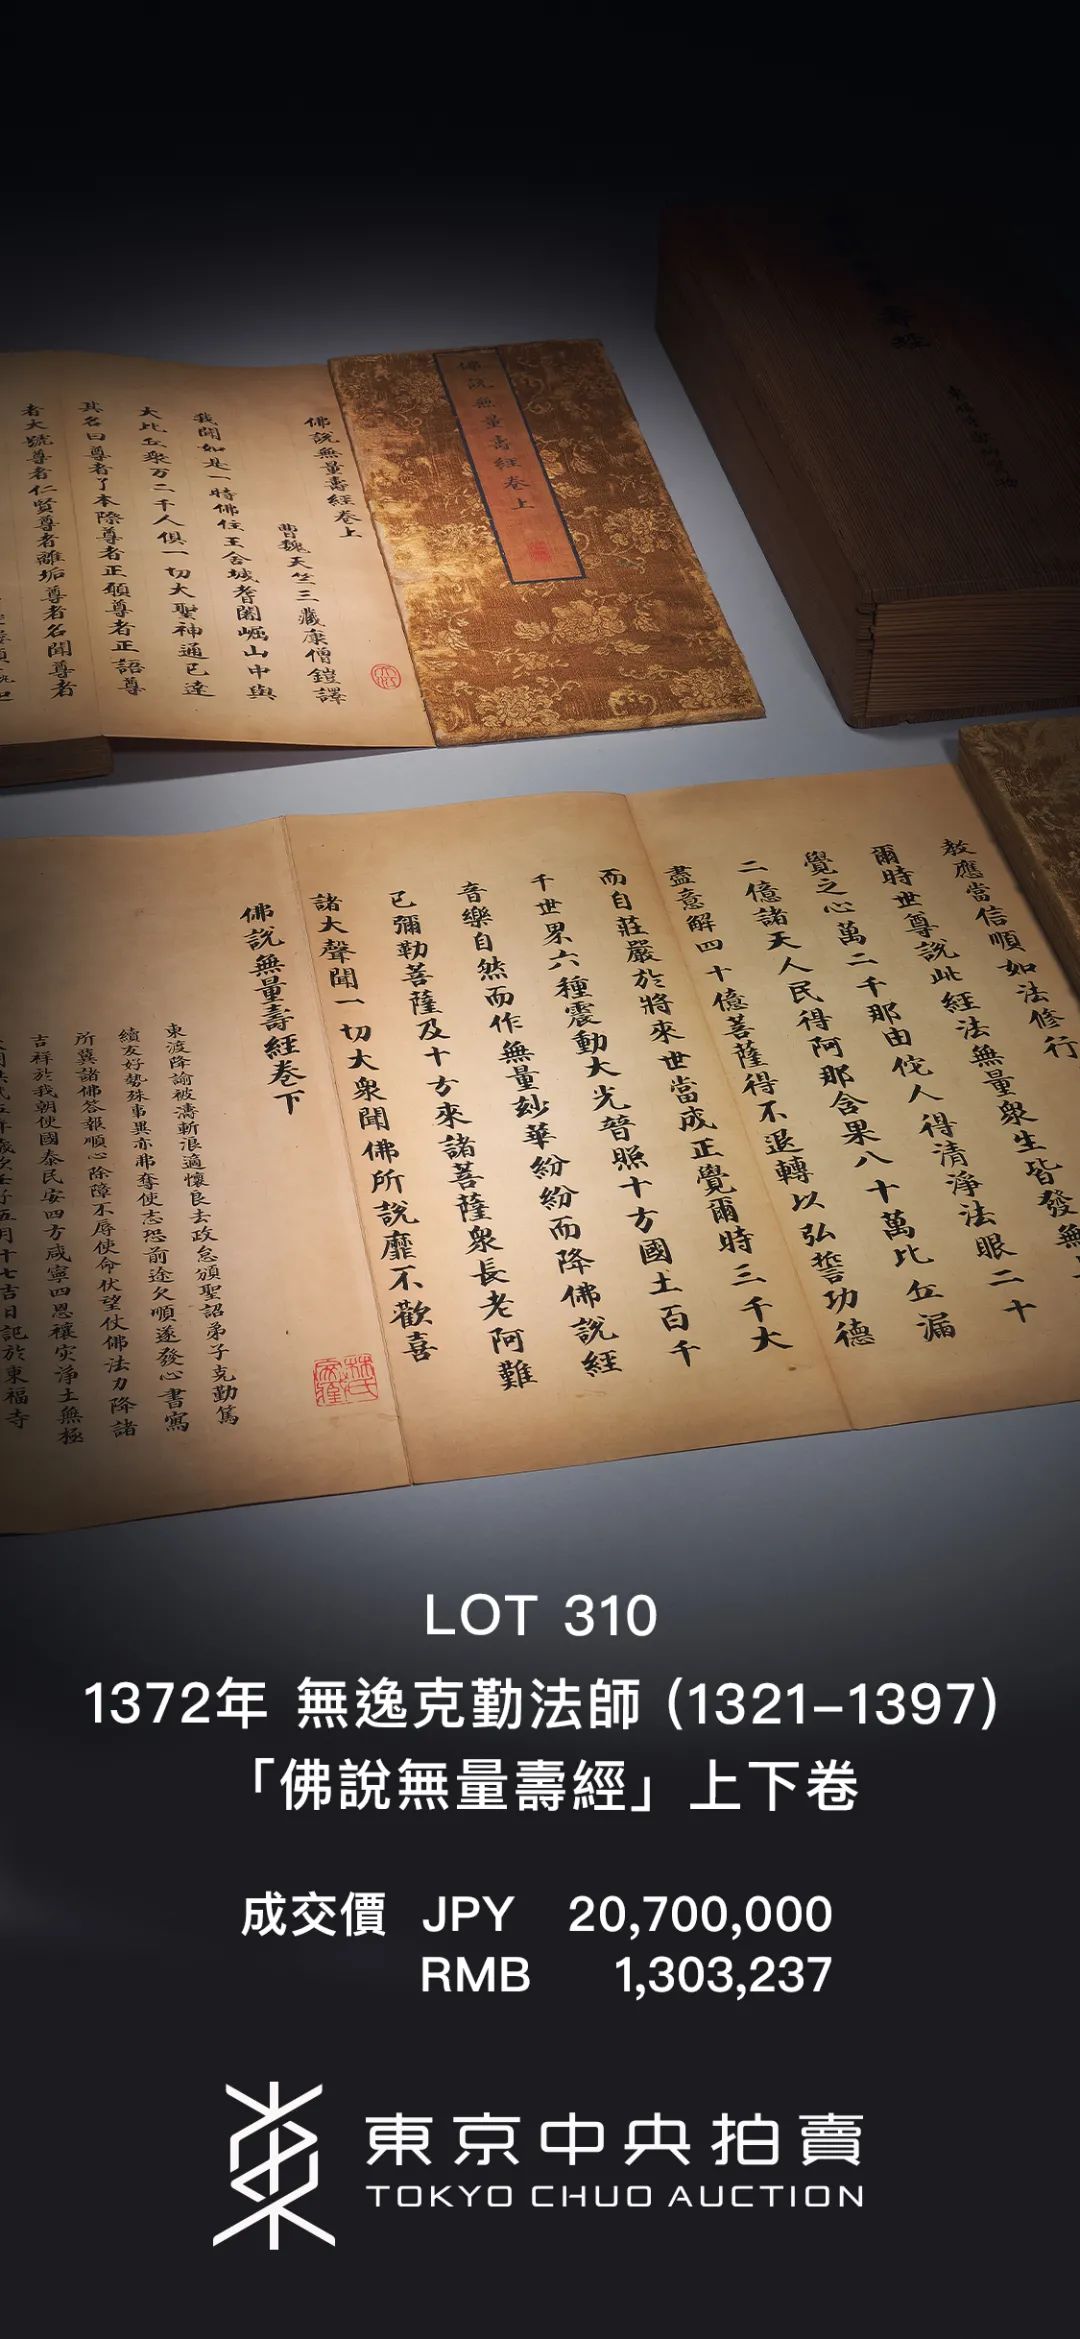 佛說無量壽經卷上
佛說無量壽經卷上
曹魏天竺三藏康僧鎧譯
我聞如是一時佛住王舍城耆闍崛山中與
大比丘衆万二千人俱一切大聖神通已達
其名曰尊者了本際尊者正願尊者正語尊
者大號尊者仁賢尊者離垢尊者名聞尊者
教應當信順如法修行
爾時世尊說此經法無量衆生皆發無上
覺之心萬二千那由佗人得清淨法眼二十
二億諸天人民得阿那含果八十萬比丘漏
盡意解四十億菩薩得不退轉以弘誓功德
而自莊嚴於將來世當成正覺爾時三千大
千世界六種震動大光普照十方國土百千
音樂自然而作無量玅華紛紛而降佛說經
已彌勒菩薩及十方來諸菩薩衆長老阿難
諸大聲聞一切大衆聞佛所說靡不歡喜
佛說無量壽經卷下
東渡降諭被濤斬浪適懷良去政怠頒聖詔弟子克勤篤
續友好勢殊事異亦弗奪使志恐前途欠順遂發心書寫
所冀諸佛答報順心除障不辱使命伏望仗佛法力降諸
吉祥於我朝使國泰民安四方咸寧四恩禳灾淨土無極
五月十七吉日記於東福寺
LOT 310
1372年 無逸克勤法師 (1321-1397)
「佛說無量壽經」上下卷
成交價 JPY 20,700,000
RMB 1,303,237
東京中央拍賣
TOKYO CHUO AUCTION